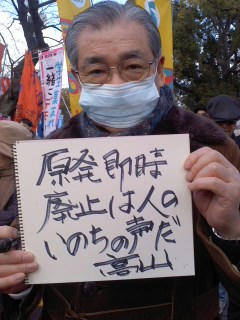 原発即時
廃止は人の
いのちの声だ
高山
一緒に